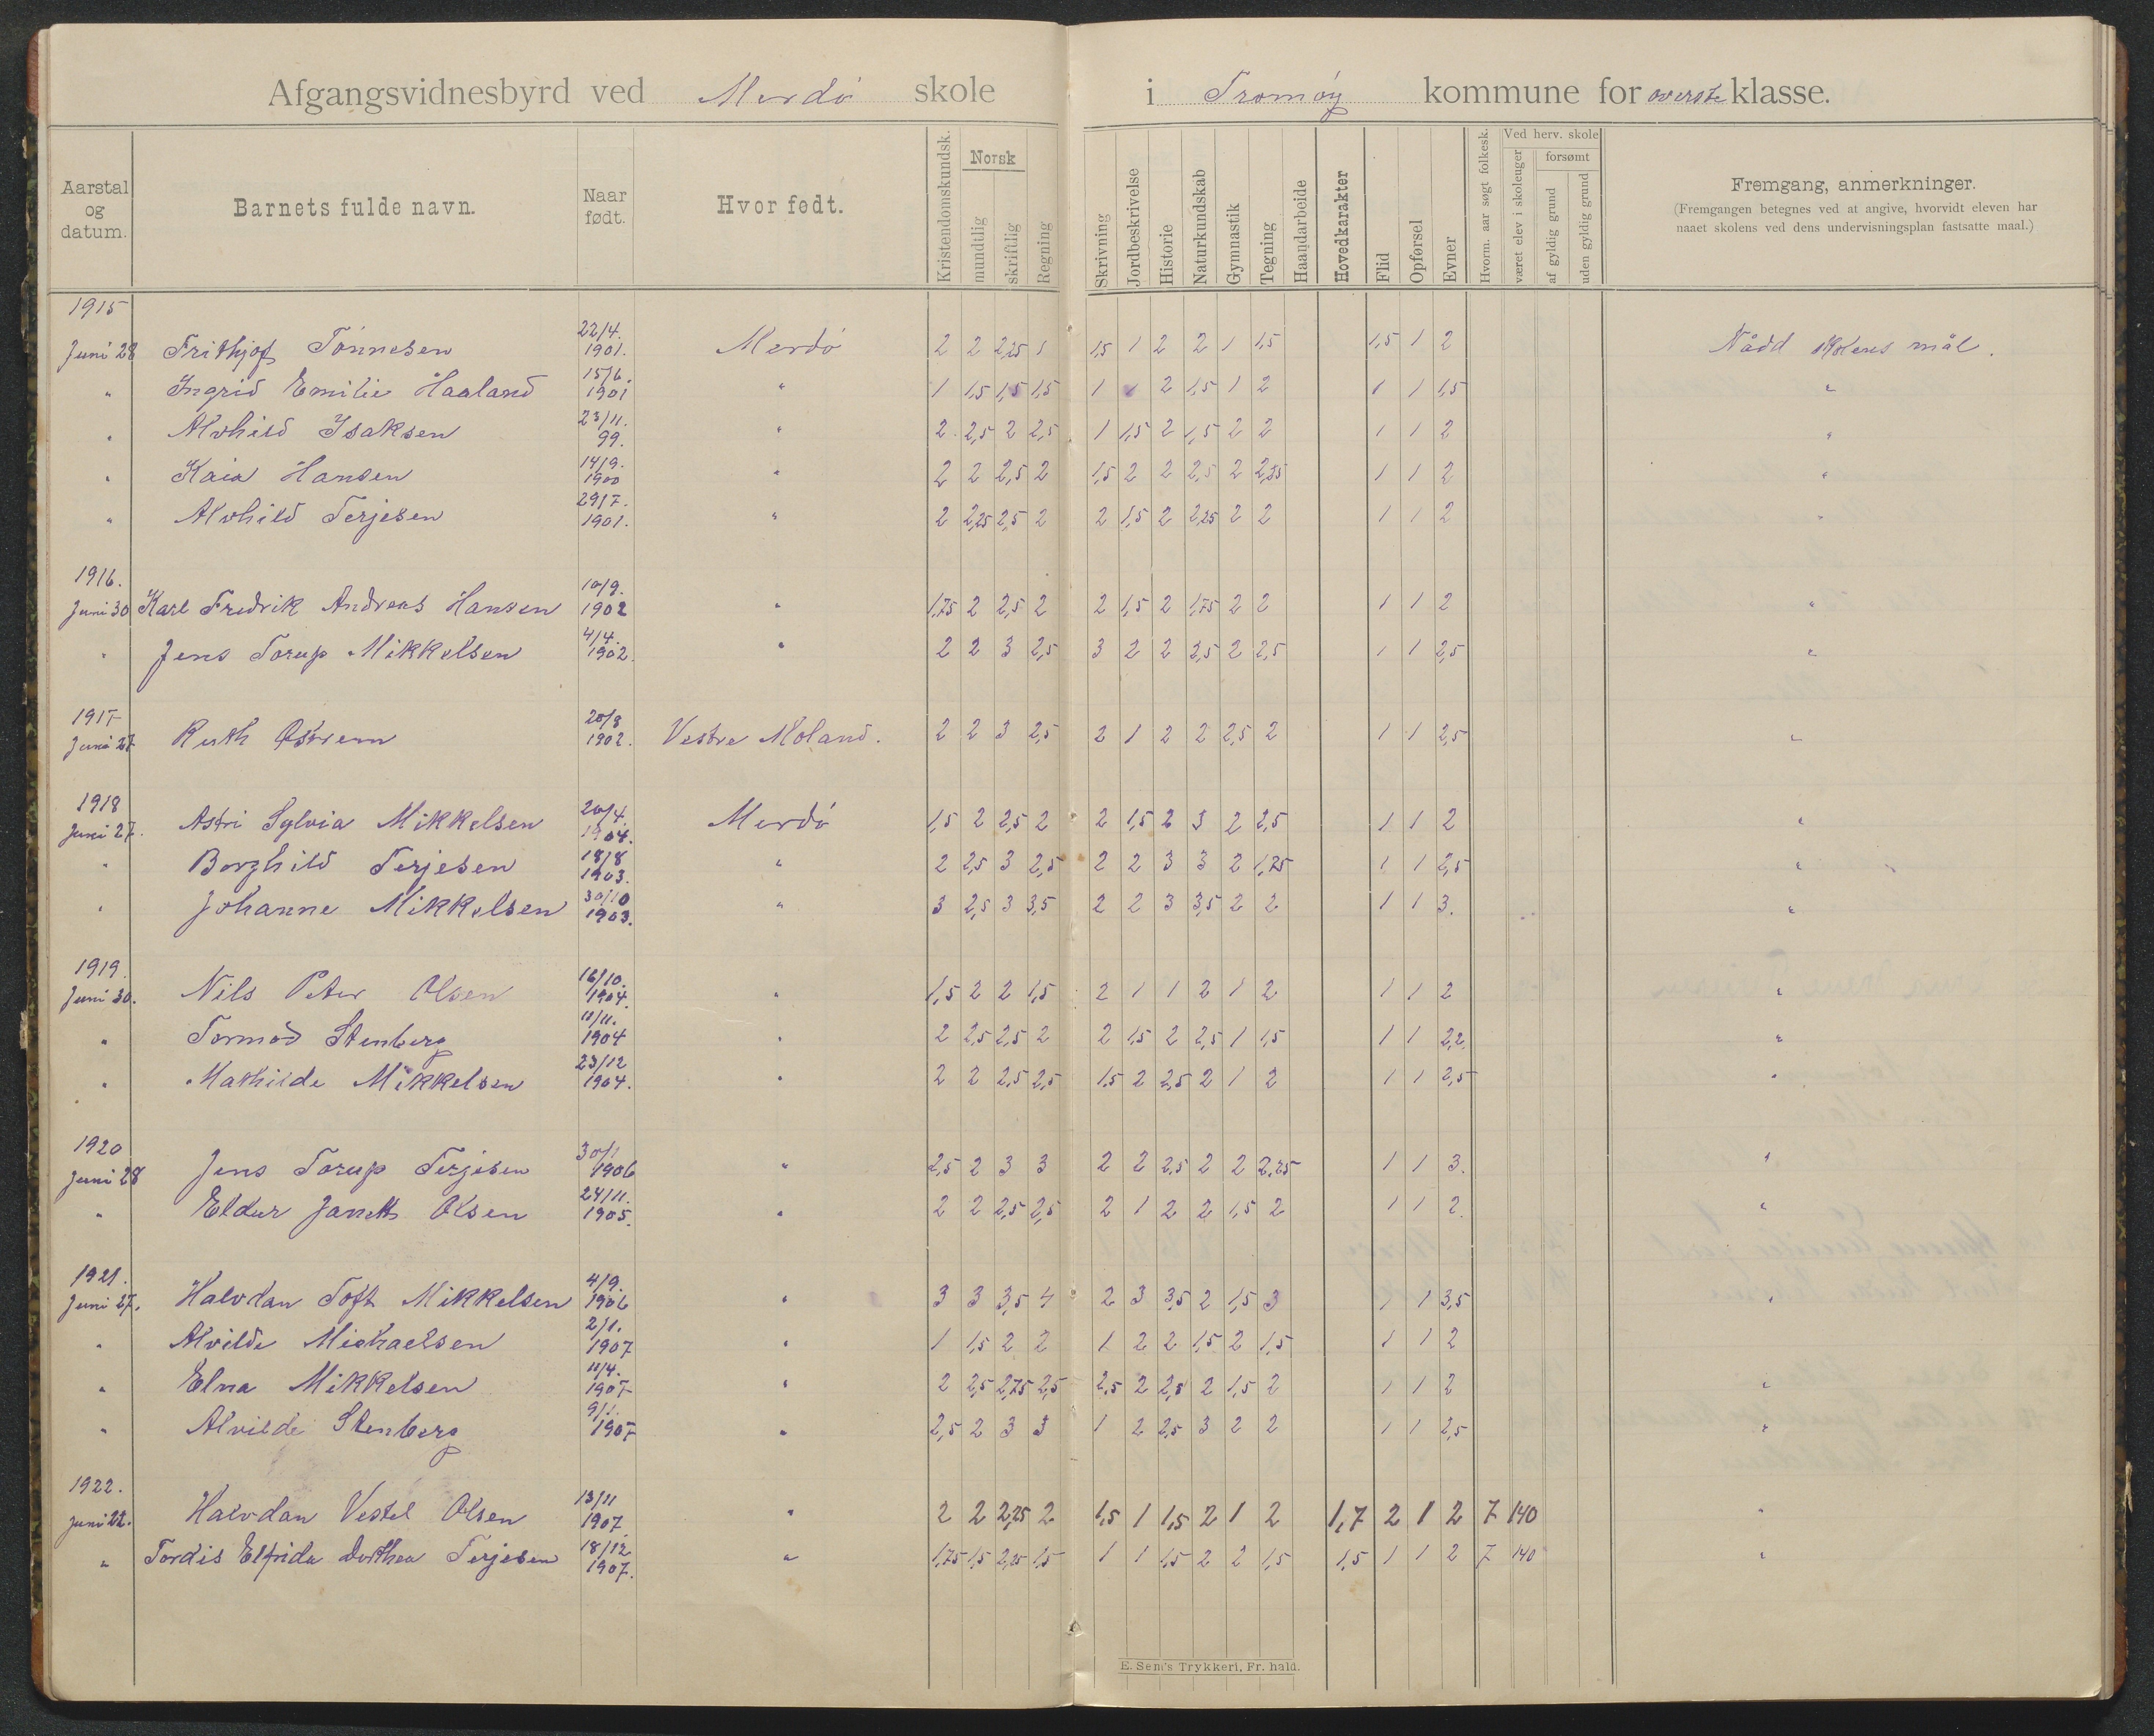 Afgangsvidnesbyrd ved Merdø skole i Tromøy kommune for øverste klasse.
Aarstal og datum. Barnets fulde navn. Naar født. Hvor født. Kristendomskundsk. Norsk mundtlig skriftlig Regning Skrivning Jordbeskrivelse Historie Naturkundskab Gymnastik Tegning Haandarbeide Hovedkarakter Flid Opførsel Evner Hvorm. aar søgt folkesk. Ved herv. skole været elev i skoleuger forsømt af gyldig grund uden gyldig grund Fremgang, anmerkninger.
(Fremgangen betegnes ved at angive, hvorvidt eleven har
naaet skolens ved dens undervisningsplan fastsatte maal.)
1915
Juni 28 Frithjof Tønnesen 22/4. 1901. Merdø 2 2 2,25 1 1,5 1 2 2 1 1,5 1,5 1 2 Nådd skolens mål.
" Ingrid Emilie Haaland 15/6. 1901 " 1 1,5 1,5 1,5 1 2 1,5 1 2 1 1 1,5 "
" Alvhild Isaksen 23/11. 99. " 2 2,5 2 2,5 1 1,5 2 1,5 2 2 1 1 2 "
" Kaia Hansen 14/9. 1900 " 2 2 2,5 2 1,5 2 2 2,5 2 2,25 1 1 2 "
" Alvhild Terjesen 29/7. 1901. " 2 2,25 2,5 2 2 1,5 2 2,25 2 2 1 1 2 "
1916.
Juni 30 Karl Fredrik Andreas Hansen 10/9. 1902 " 1,75 2 2,5 2 2 1,5 2 1,75 2 2 1 1 2 "
" Jens Torup Mikkelsen 4/4. 1902. " 2 2 3 2,5 3 2 2 2,5 2 2,5 1 1 2,5 "
1917
Juni 27 Ruth Østrem 20/8 1902. Vestre Moland. 2 2 3 2,5 2 1 2 2 2,5 2 1 1 2,5 "
1918
Juni 27. Astri Sylvia Mikkelsen 20/4. 1904. Merdø 1,5 2 2,5 2 2 1,5 2 3 2 2,5 1 1 2 "
" Borghild Terjesen 18/8 1903. " 2 2,5 3 2,5 2 2 3 3 2 1,75 1 1 2,5 "
" Johanne Mikkelsen 30/10 1903. " 3 2,5 3 3,5 2 2 3 3,5 2 2 1 1 3. "
1919.
Juni 30. Nils Peter Olsen 16/10. 1904. " 1,5 2 2 1,5 2 1 1 2 1 2 1 1 2 "
" Tormod Stenberg 11/11. 1904 " 2 2,5 2,5 2 2 1,5 2 2,5 1 1,5 1 1 2,2. "
" Mathilde Mikkelsen 23/12 1904. " 2 2 2,5 2,5 1,5 2 2,5 2 1 2 1 1 2,5 "
1920
Juni 28 Jens Torup Terjesen 30/1 1906 " 2,5 2 3 3 2 2 2,5 2 2 2,25 1 1 3. "
" Eldur Janette Olsen 24/11. 1905. " 2 2 2,5 2,5 2 1 2 2 1,5 2 1 1 2. "
1921.
Juni 27. Halvdan Toft Mikkelsen 4/9. 1906 " 3 3 3,5 4 2 3 3,5 2 1,5 3 1 1 3,5 "
" Alvilde Michaelsen 2/1. 1907 " 1 1,5 2 2 1 2 2 1,5 2 1,5 1 1 2
" Elna Mikkelsen 11/4. 1907 " 2 2,5 2,75 2,5 2,5 2 2,5 2 1,5 2 1 1 2 "
" Alvilde Stenberg 9/1. 1907 " 2,5 2 3 3 1 2 2,5 3 2 2 1 1 2,5 "
1922.
Juni 22. Halvdan Vestel Olsen 13/11 1907. " 2 2 2,25 2 1,5 1 1,5 2 1 2 1,7 2 1 2 7 140 "
" Tordis Elfrida Dorthea Terjesen 18/12 1907. " 1,75 1,5 2,25 1,5 1 1 1,5 2 2 1,5 1,5 1 1 2 7 140 "
E. Sem's Trykkeri, Fr. hald.